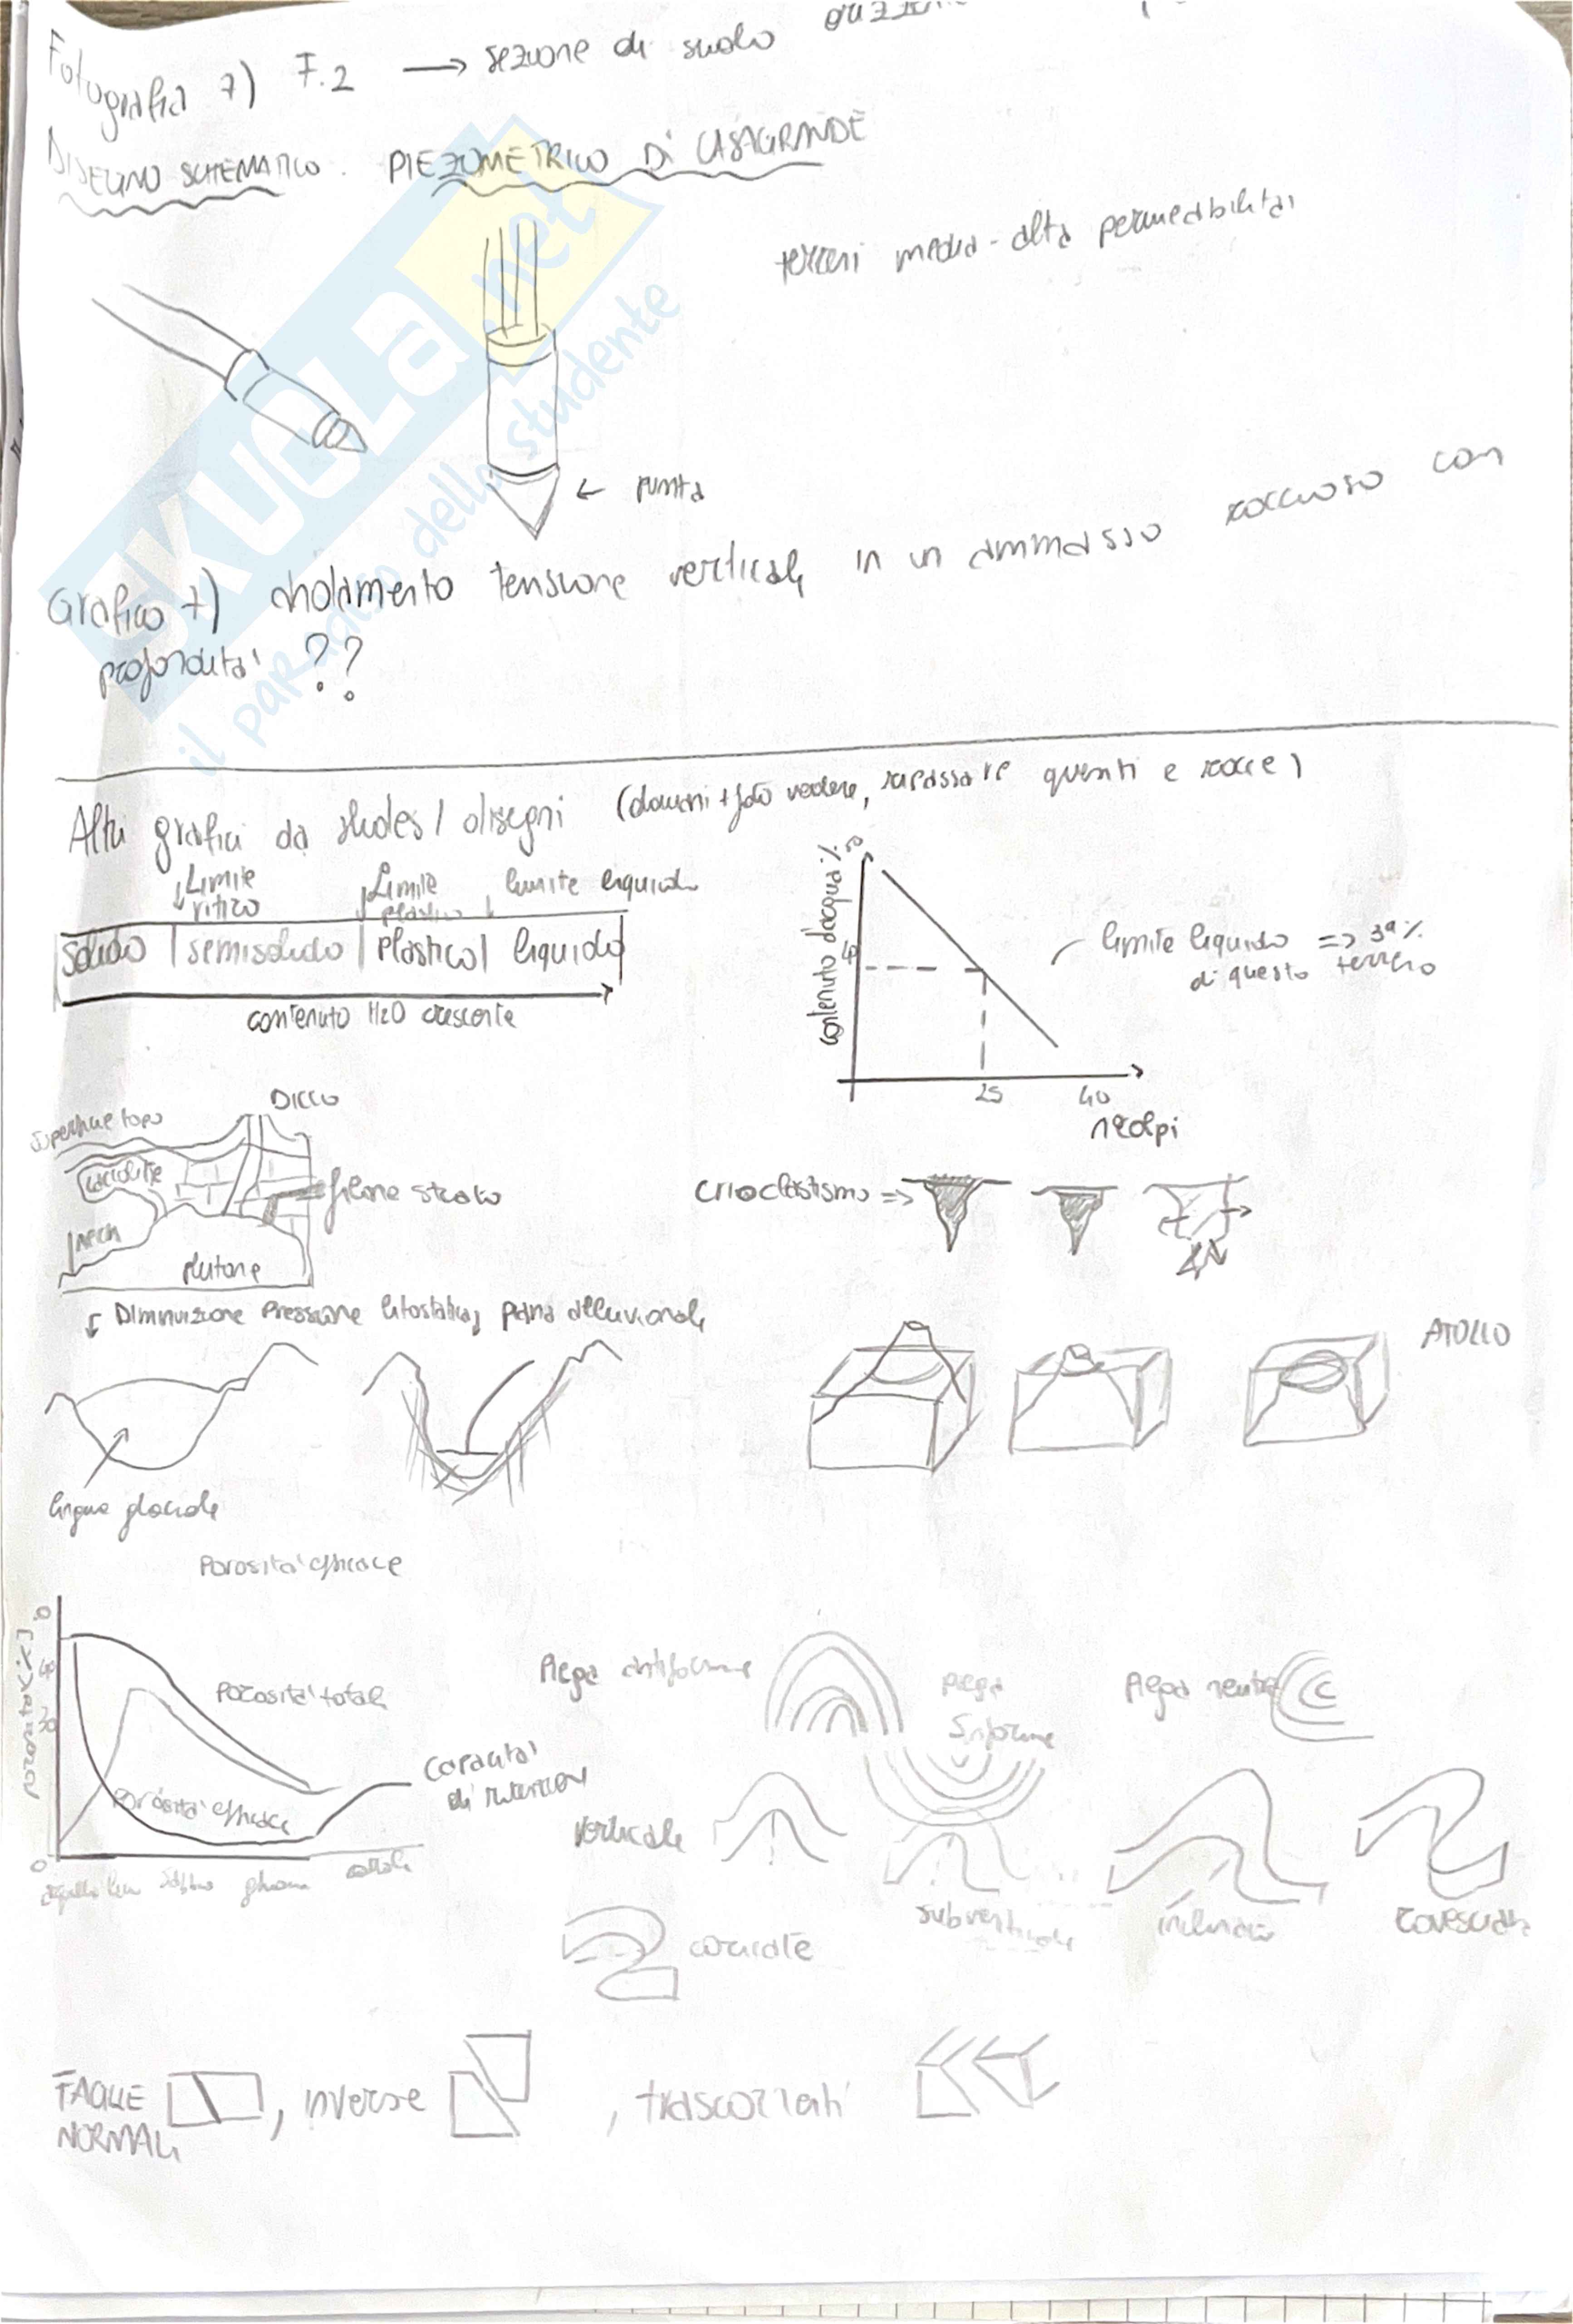 Fotografia 7) F.2 → sezione di suolo
DISEGNO SCHEMATICO. PIEZOMETRICO DI CASAGRANDE
terreni media-alta permeabilità
← punta
Grafico 7) andamento tensione verticale in un ammasso roccioso con
profondità ??
Altri grafici da slides / disegni (domani + foto vedere, ripassare questi e rocce)
↓ Limite
ritiro
↓ Limite
plastico
↓ limite liquido
solido | semisolido | plastico | liquido
contenuto H2O crescente
contenuto d'acqua %
40
25
40
n colpi
limite liquido => 39%
di questo terreno
DICCO
superficie topo
laccolite
filone strato
neck
plutone
crioclastismo =>
↓ Diminuzione pressione litostatica, piana alluvionale
lingua glaciale
ATOLLO
Porosità efficace
porosità [%]
40
30
0
Porosità totale
Porosità efficace
Capacità
di ritenzione
argilla limo sabbia ghiaia ciottoli
Piega antiforme
piega
sinforme
Piega neutra
verticale
subverticale
inclinata
rovesciata
coricate
FAGLIE
NORMALI
, inverse
, trascorrenti
SKUOLA.net
il paradiso dello studente